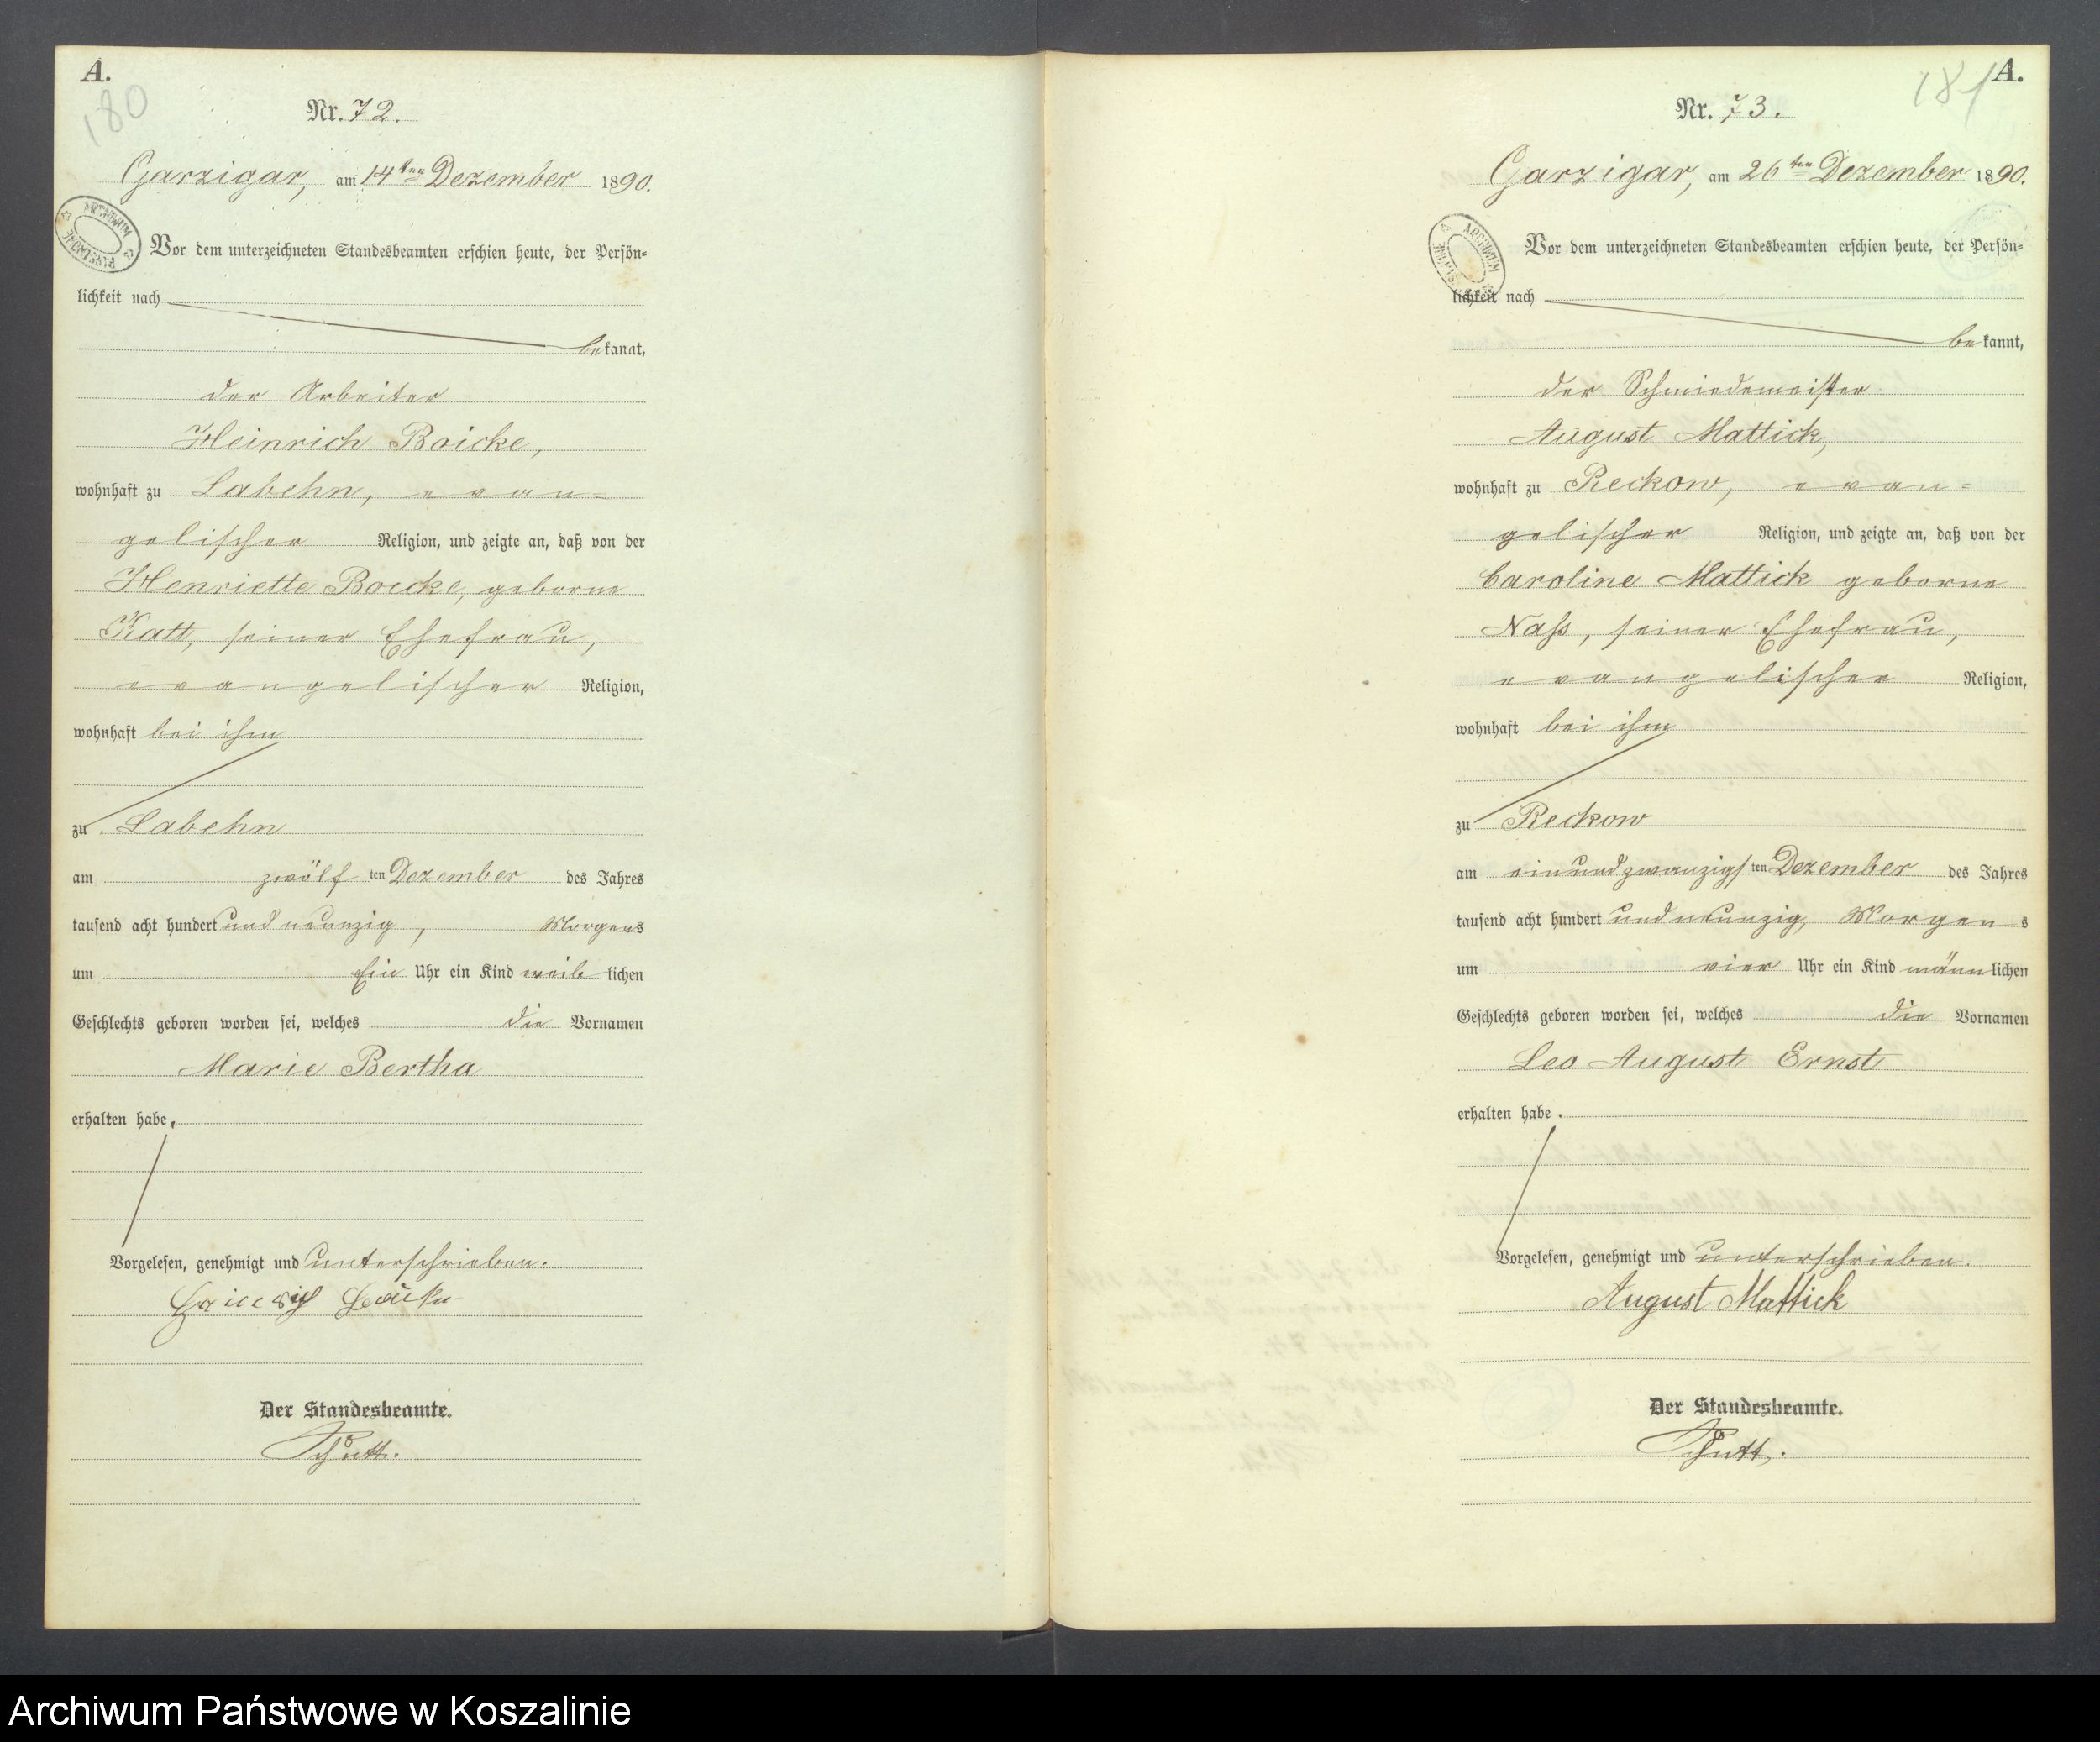 A.
180
Nr. 72.
Garzigar, am 14ten Dezember 1890.
ARCHIWUM
Vor dem unterzeichneten Standesbeamten erschien heute, der Persön=
lichkeit nach
bekannt,
der Arbeiter
Heinrich Boicke,
wohnhaft zu Labehn, evan=
gelischer Religion, und zeigte an, daß von der
Henriette Boicke, geborne
Katt, seiner Ehefrau,
evangelischer Religion,
wohnhaft bei ihm
zu Labehn
am zwölften Dezember des Jahres
tausend acht hundert und neunzig, Morgens
um Ein Uhr ein Kind weiblichen
Geschlechts geboren worden sei, welches die Vornamen
Marie Bertha
erhalten habe.
Vorgelesen, genehmigt und unterschrieben.
Heinrich Boicke
Der Standesbeamte.
A.
181
Nr. 73.
Garzigar, am 26ten Dezember 1890.
ARCHIWUM
Vor dem unterzeichneten Standesbeamten erschien heute, der Persön=
lichkeit nach
bekannt,
der Schmiedemeister
August Mattick,
wohnhaft zu Reckow, evan=
gelischer Religion, und zeigte an, daß von der
Caroline Mattick geborne
Naß, seiner Ehefrau,
evangelischer Religion,
wohnhaft bei ihm
zu Reckow
am einundzwanzigsten Dezember des Jahres
tausend acht hundert und neunzig, Morgens
um vier Uhr ein Kind männlichen
Geschlechts geboren worden sei, welches die Vornamen
Leo August Ernst
erhalten habe.
Vorgelesen, genehmigt und unterschrieben.
August Mattick
Der Standesbeamte.
Archiwum Państwowe w Koszalinie